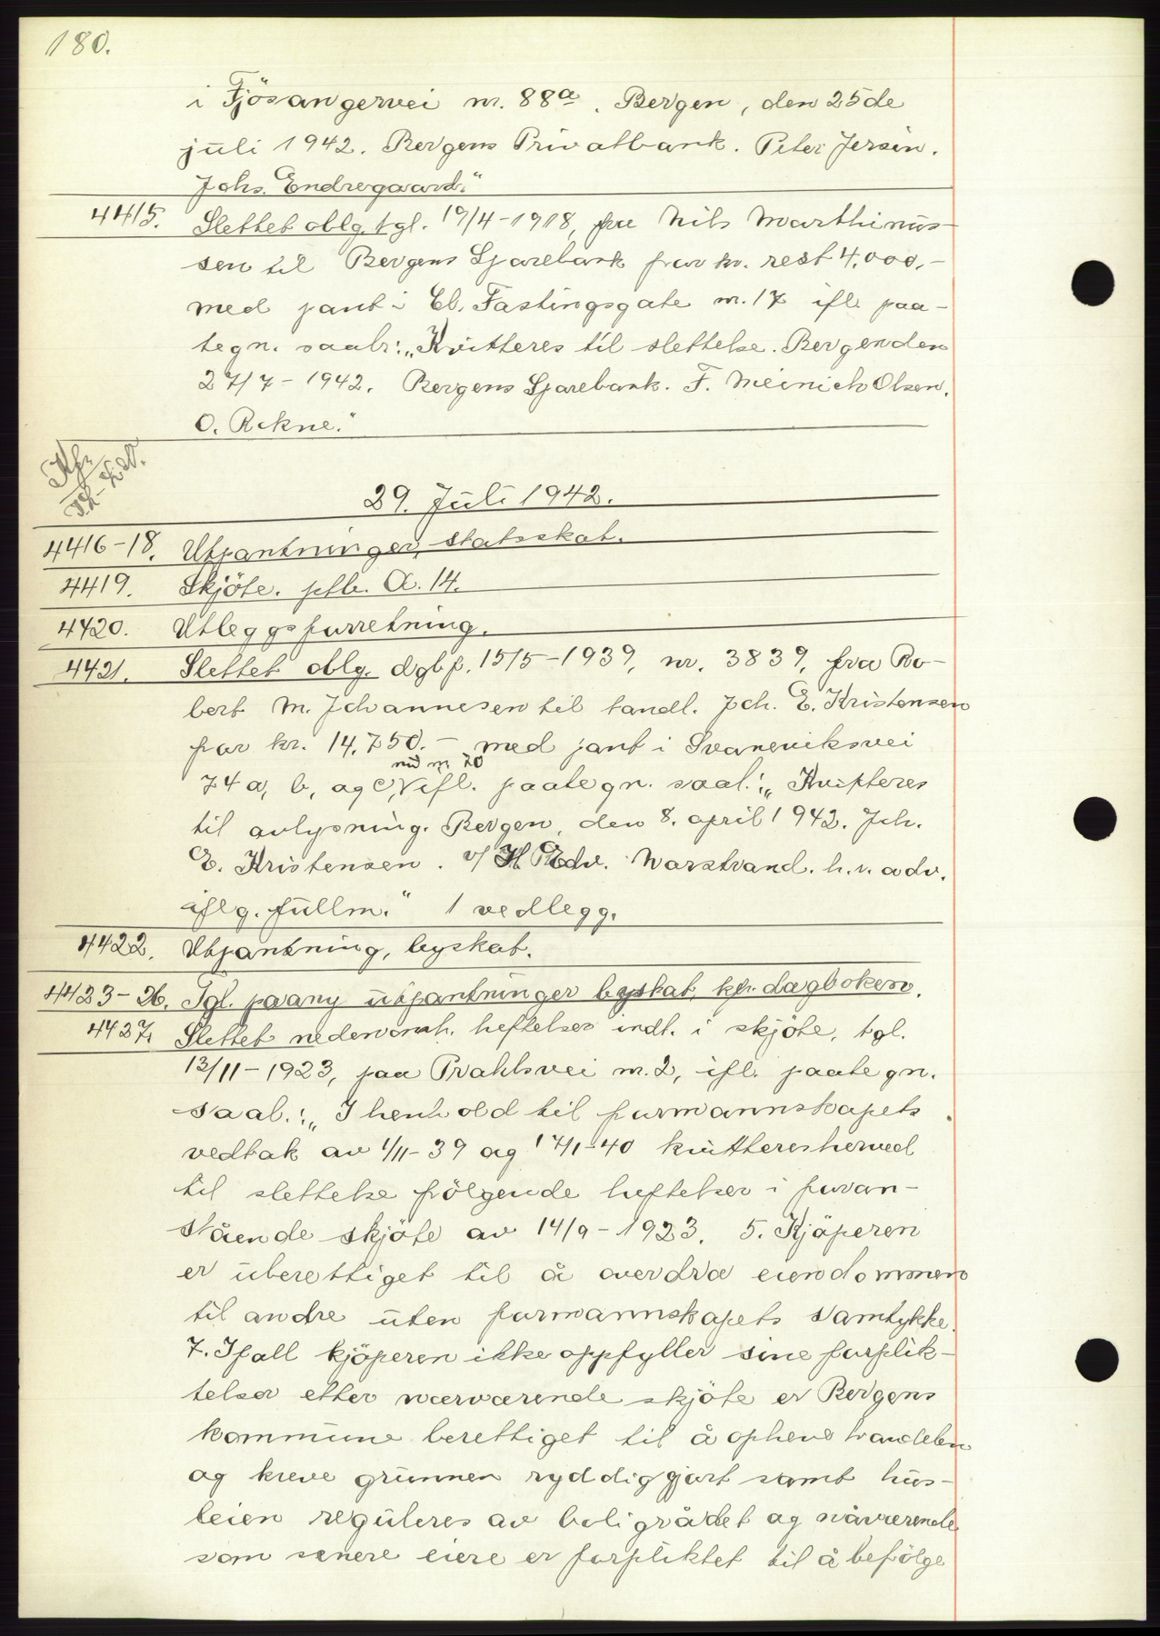 180.
i Fjösangervei nr. 88a. Bergen, den 25de
juli 1942. Bergens Privatbank. Peter Jersin.
Johs. Endregaard."
4415. Slettet oblg. tgl. 19/4-1918, fra Nils Marthinus-
sen til Bergens Sparebank for kr. rest 4.000,-
med pant i Cl. Fastingsgate nr. 17 ifl. paa-
tegn. saal.: „Kvitteres til slettelse. Bergen den
27/7-1942. Bergens Sparebank. F. Meinich Olsen.
O. Rekne."
29. Juli 1942.
4416-18. Utpantninger, statsskat.
4419. Skjöte. pfb. A. 14.
4420. Utleggsforretning.
4421. Slettet oblg. dgbf. 15/5-1939, nr. 3839, fra Ro-
bert M. Johannesen til tandl. Joh. E. Kristensen
for kr. 14.750.- med pant i Svaneviksvei
74 a, b, og c, ifl. paategn. saal.: „Kvitteres
nr. 70
til avlysning. Bergen, den 8. april 1942. Joh.
E. Kristensen. v/ Edv. Marstrand. h.r. adv.
iflg. fullm." 1 vedlegg.
4422. Utpantning, byskat.
4423-26. Tgl. paany utpantninger byskat, kfr. dagboken.
4427. Slettet nedenomh. heftelser indt. i skjöte, tgl.
13/11-1923, paa Prahlsvei nr. 2, ifl. paategn.
saal.: „I henhold til formannskapets
vedtak av 1/11-39 og 17/1-40 kvitteres herved
til slettelse fölgende heftelser i foran-
stående skjöte av 14/9-1923. 5. Kjöperen
er uberettiget til å overdra eiendommen
til andre uten formannskapets samtykke.
7. Ifall kjöperen ikke oppfyller sine forplik-
telser etter nærværende skjöte er Bergens
kommune berettiget til å opheve handelen
og kreve grunnen ryddiggjort samt hus-
leien reguleres av boligrådet og nåværende
som senere eiere er forpliktet til å befölge